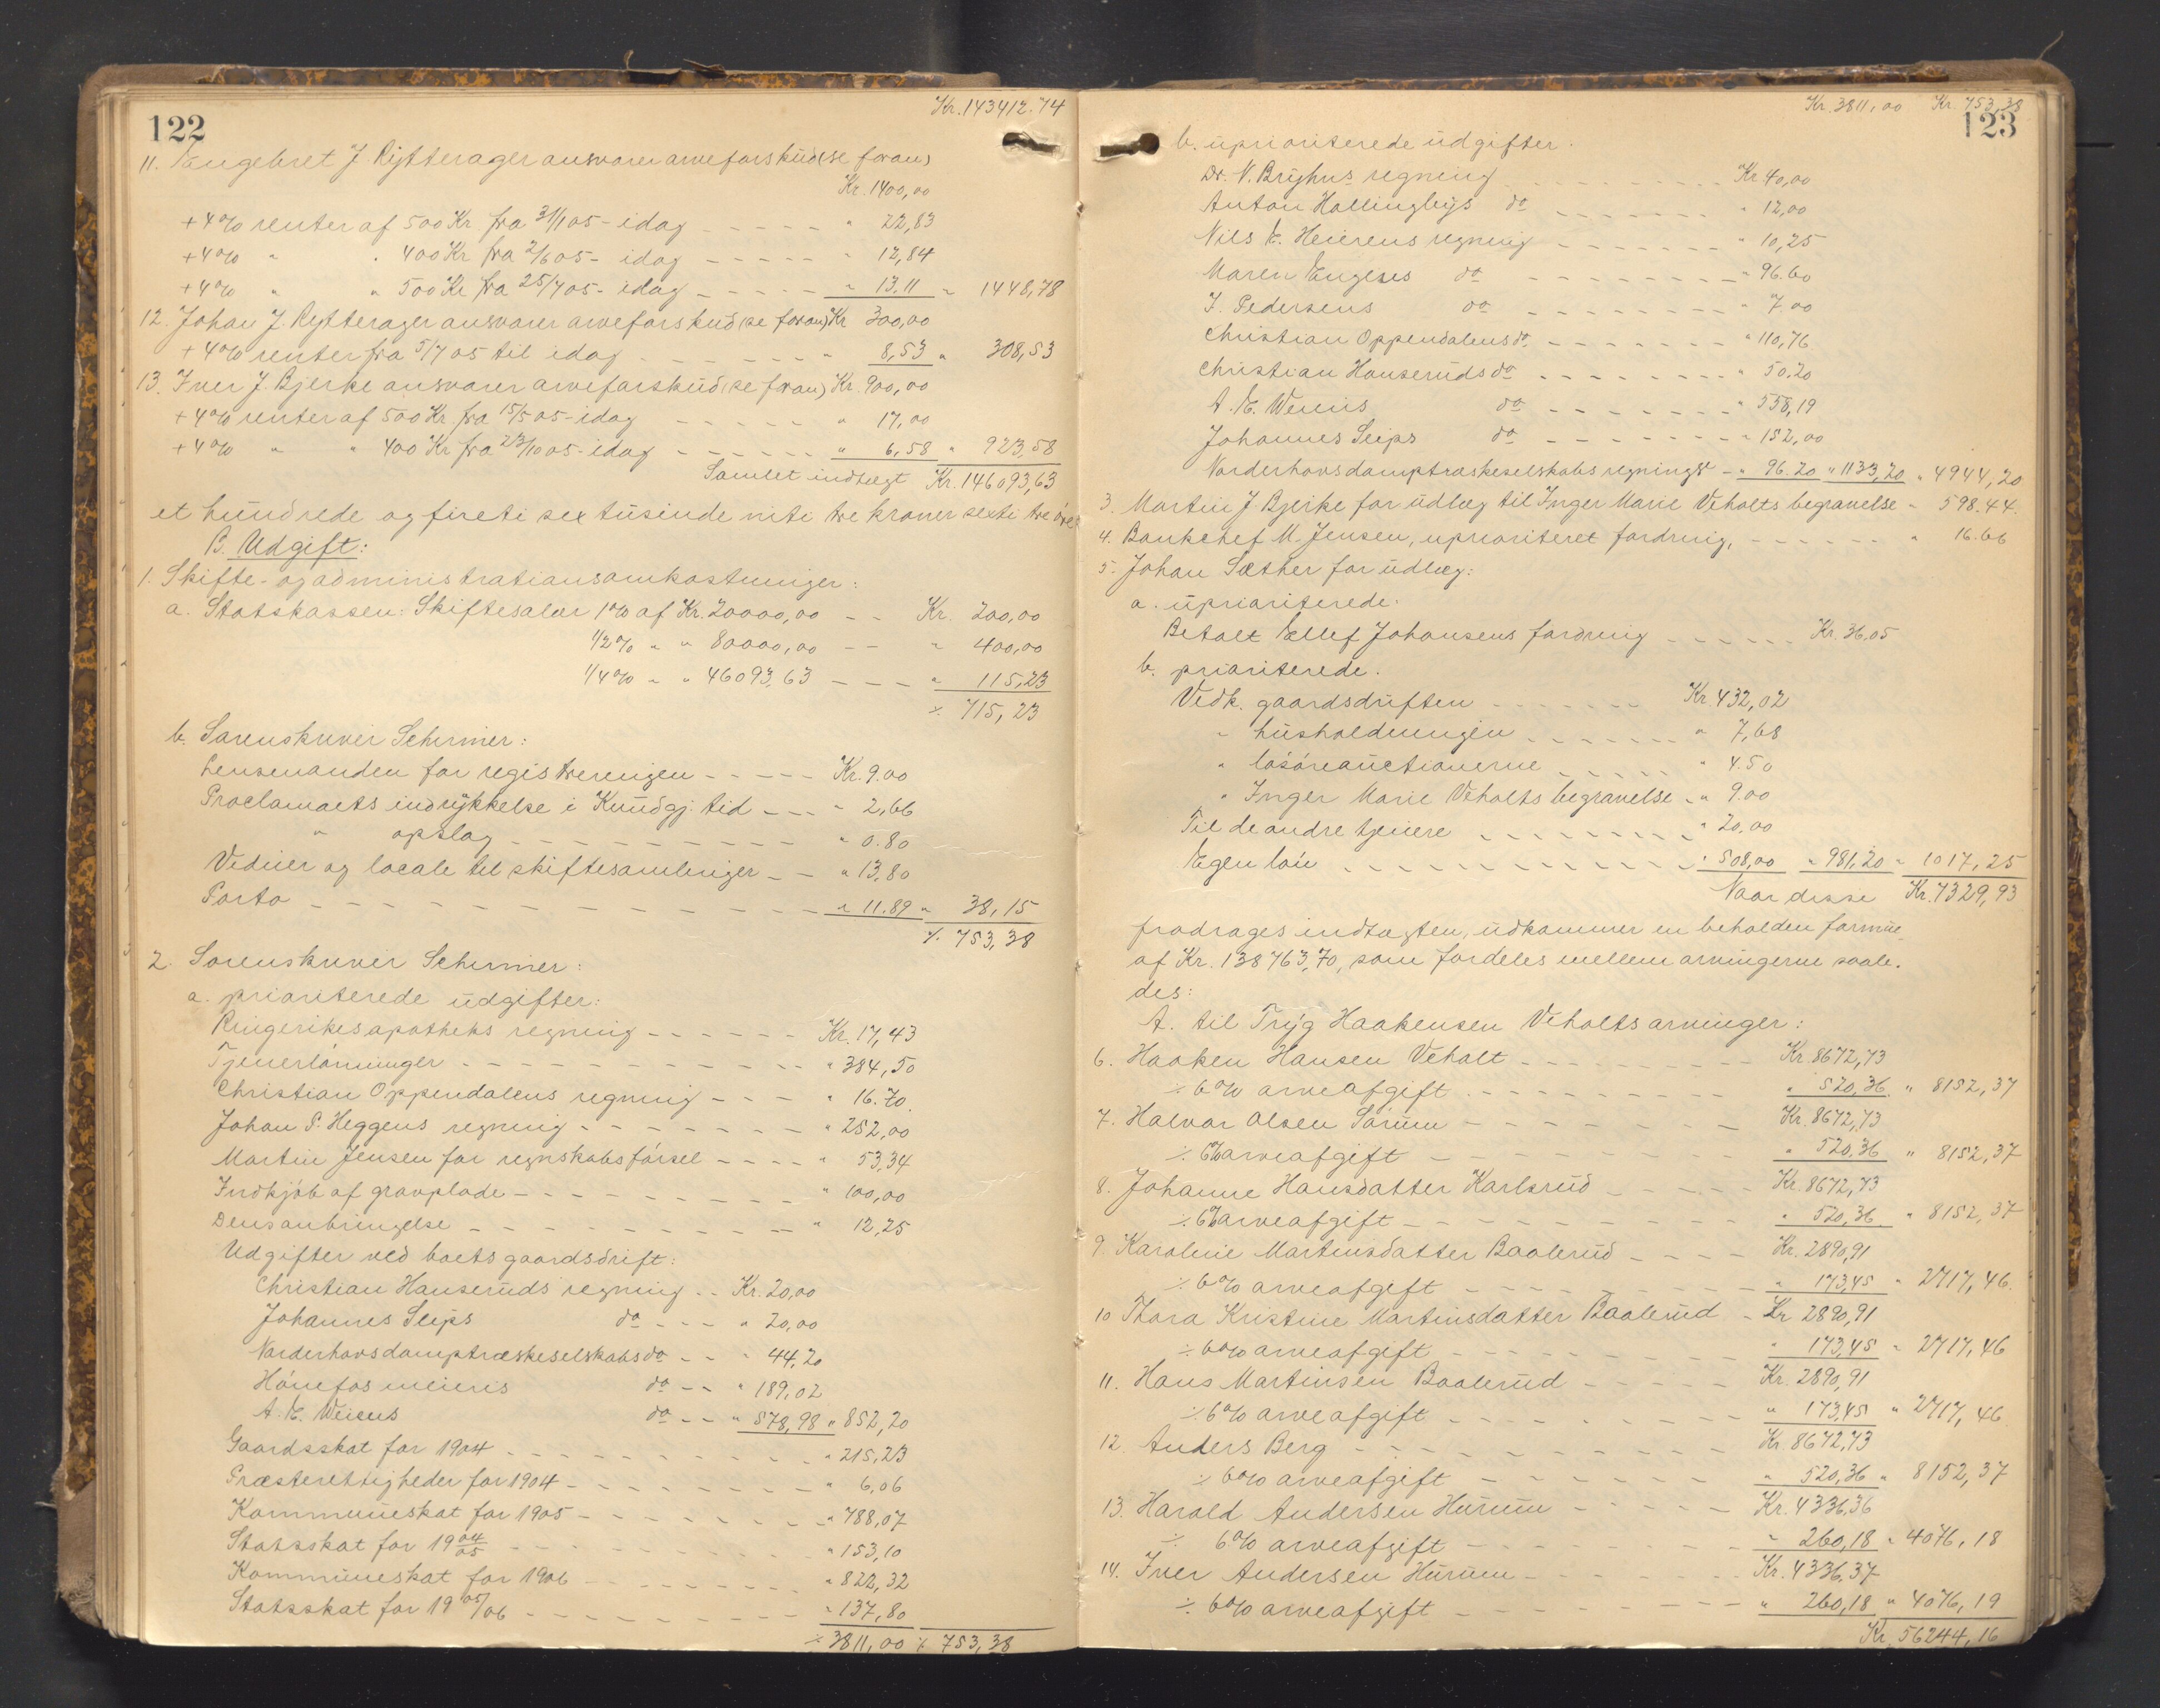 122
Kr. 143412.74
11. Engebret J. Rytterager ansvarer arveforskud (se foran)
Kr. 1400,00
+ 4% renter af 500 Kr. fra 31/1 05 - idag - - - - - " 22,83
+ 4% " " 400 Kr fra 2/6 05 - idag - - - - - " 12,84
+ 4% " " 500 Kr fra 25/7 05 - idag - - - - - " 13.11 " 1448,78
12. Johan J. Rytterager ansvarer arveforskud (se foran) Kr 300,00
+ 4% renter fra 5/7 05 til idag - - - - - - - " 8,53 " 308,53
13. Iver J. Bjerke ansvarer arveforskud (se foran) Kr. 900,00
+ 4% renter af 500 Kr. fra 15/5 05 - idag - - - - - " 17,00
+ 4% " " 400 Kr fra 23/10 05 - idag - - - - - - " 6,58 " 923,58
Samlet indtægt Kr. 146093,63
et hundrede og fireti sex tusinde niti tre kroner sexti tre øre
B. Udgift:
1. Skifte- og administrationsomkostninger:
a. Statskassen: Skiftesalær 1% af Kr. 20000,00 - - Kr. 200,00
1/2% " " 80000,00 - - " 400,00
1/4% " " 46093,63 - - - " 115,23
⁒ 715,23
b. Sorenskriver Schirmer:
Lensmanden for registreringen - - - - - Kr. 9.00
Proclamaets indrykkelse i Kundgj. tid - - - " 2,66
" opslag - - - - - - - - - " 0.80
Vidner og locale til skiftesamlinger - - " 13,80
Porto - - - - - - - - - - - - " 11.89 " 38,15
⁒ 753,38
2. Sorenskriver Schirmer:
a. prioriterede udgifter:
Ringerikes apotheks regning - - - - - Kr. 17,43
Tjenerlønninger - - - - - - - - - - " 384,50
Christian Oppendalens regning - - - " 16.70.
Johan P. Heggens regning - - - - - - - " 252,00
Martin Jensen for regnskabsførsel - - - - " 53,34
Indkjøb af gravplade - - - - - - - - - " 100,00
Dens anbringelse - - - - - - - - - - " 12,25
Udgifter ved boets gaardsdrift:
Christian Hanseruds regning - - Kr. 20,00
Johannes Seips do - - - " 20,00
Norderhovs damptræskeselskabs do - - " 44,20
Hønefos meieris do - - " 189,02
A. E. Weiens do - - " 578,98 " 852,20
Gaardsskat for 1904 - - - - - - - - - " 215,23
Præsterettigheder for 1904 - - - - - - - - " 6,06
Kommuneskat for 1905 - - - - - - - - " 788,07
Statsskat for 19 04/05 - - - - - - - - - " 153,10
Kommuneskat for 1906 - - - - - - - - " 822,32
Statsskat for 19 05/06 - - - - - - - - - " 137,80
⁒ 3811,00 ⁒ 753,38
Kr. 3811,00 Kr. 753,38
123
b. uprioriterede udgifter.
Dr. N. Bryhns regning - - - - - - - - - Kr. 40,00
Anton Hallingbys do - - - - - - - " 12,00
Nils E. Heierens regning - - - - - - - " 10,25
Maren Engeses do - - - - - - - - " 96.60
J. Pedersens do - - - - - - - - " 7.00
Christian Oppendalens do. - - - - - - - " 110,76
Christian Hanseruds do - - - - - - - - " 50.20
A. E. Weiens do - - - - - - - " 558,19
Johannes Seips do - - - - - - - - " 152,00
Norderhovs damptræskeselskabs regning - " 96.20 " 1133,20 " 4944,20
3. Martin J Bjerke for udlæg til Inger Marie Veholts begravelse " 598.44.
4. Bankchef M. Jensen, uprioriteret fordring, - - - - - - " 16.66
5. Johan Sæther for udlæg:
a. uprioriterede:
Betalt Ellef Johansens fordring - - - - - Kr. 36,05
b. prioriterede.
Vedk. gaardsdriften - - - - - - - Kr. 432,02
" husholdningen - - - - - - " 7,68
" løsøreauctionerne - - - - - " 4.50
" Inger Marie Veholts begravelse - " 9.00
Til de andre tjenere - - - - - - - - " 20,00
Egen løn - - - - - - - - - - - - - " 508,00 " 981,20 " 1017,25
Naar disse Kr. 7329,93
fradrages indtægten, udkommer en beholden formue
af Kr. 138763,70, som fordeles mellem arvingerne saale-
des:
A. til Tryg Haakensen Veholts arvinger:
6. Haaken Hansen Veholt - - - - - - - - Kr. 8672,73
⁒ 6% arveafgift - - - - - - - - - " 520,36 " 8152,37
7. Halvor Olsen Sørum - - - - - - - - Kr. 8672,73
⁒ 6% arveafgift - - - - - - - - - - " 520,36 " 8152,37
8. Johanne Hansdatter Karlsrud - - - - - Kr. 8672,73
⁒ 6% arveafgift - - - - - - - - - - " 520,36 " 8152,37
9. Karoline Martinsdatter Baalerud - - - - Kr. 2890,91
⁒ 6% arveafgift - - - - - - - - - " 173,45 " 2717,46.
10 Thora Kristine Martinsdatter Baalerud - Kr 2890,91
⁒ 6% arveafgift - - - - - - - - - " 173,45 " 2717,46
11. Hans Martinsen Baalerud - - - - - Kr. 2890,91
⁒ 6% arveafgift - - - - - - - - " 173,45 " 2717,46
12. Anders Berg - - - - - - - - - - - Kr. 8672,73
⁒ 6% arveafgift - - - - - - - " 520,36 " 8152,37
13. Harald Andersen Hurum - - - - - Kr. 4336,36
⁒ 6% arveafgift - - - - - - - - " 260,18 " 4076,18
14. Iver Andersen Hurum - - - - - - Kr. 4336,37
⁒ 6% arveafgift - - - - - - - - - " 260,18 " 4076,19
Kr. 56244,16